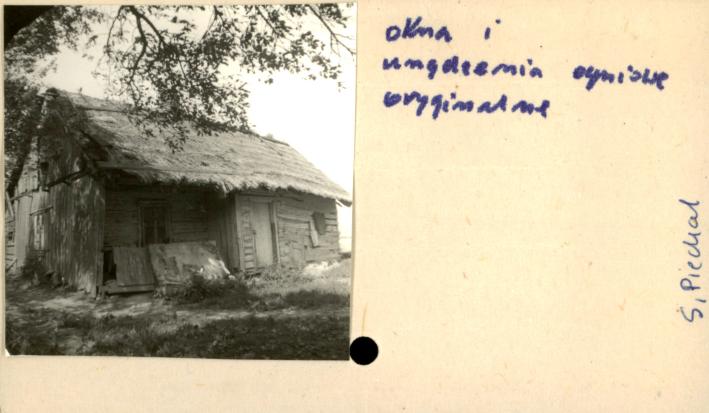 okna i
urządzenia ogniowe
oryginalne
S. Piechal